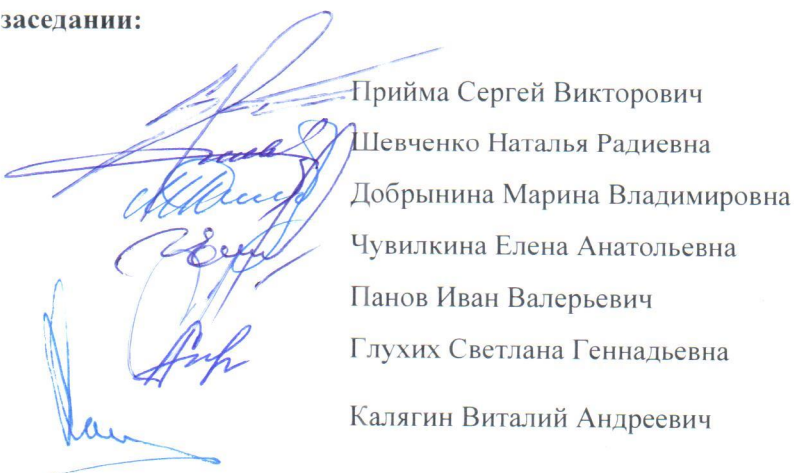 заседании:
Прийма Сергей Викторович
Шевченко Наталья Радиевна
Добрынина Марина Владимировна
Чувилкина Елена Анатольевна
Панов Иван Валерьевич
Глухих Светлана Геннадьевна
Калягин Виталий Андреевич